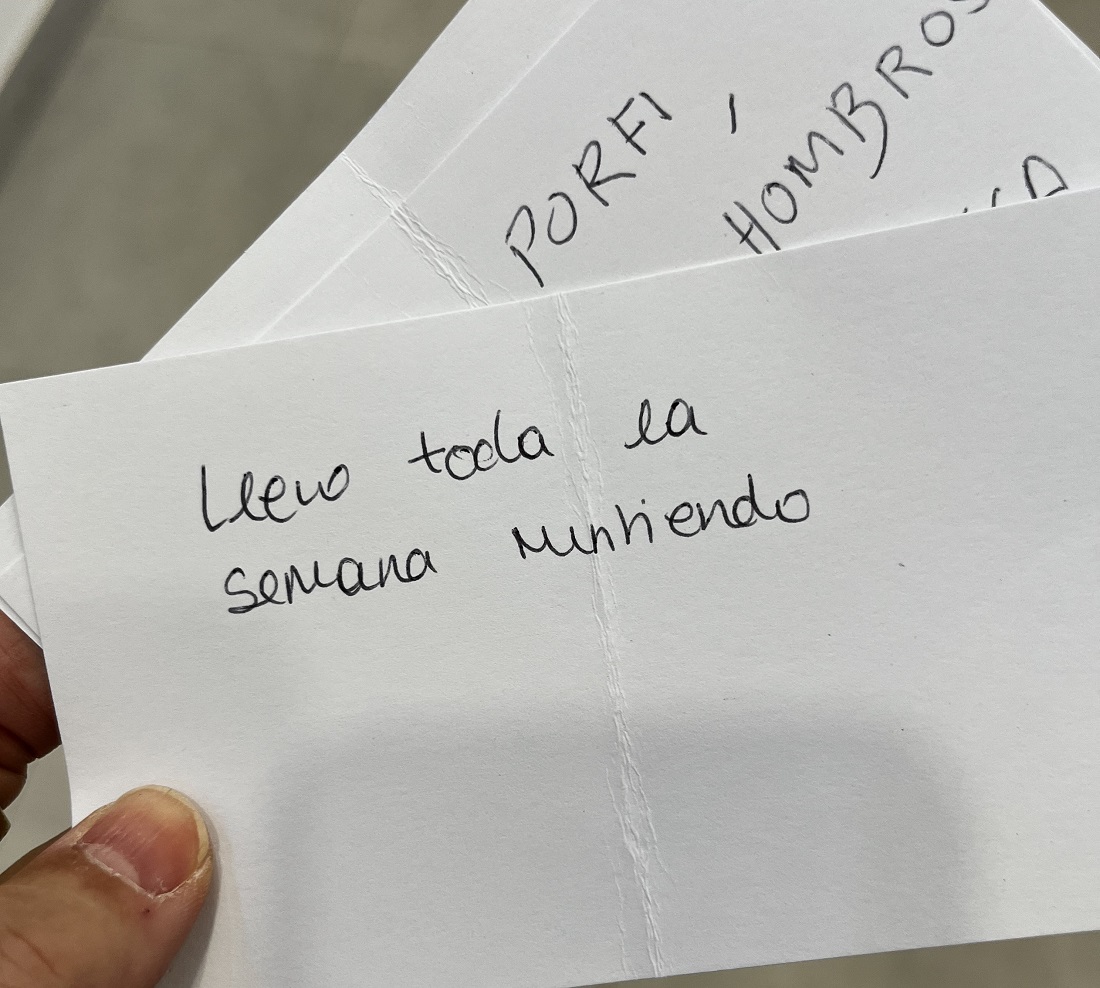 PORFI,
HOMBROS
Llevo toda la
semana mintiendo